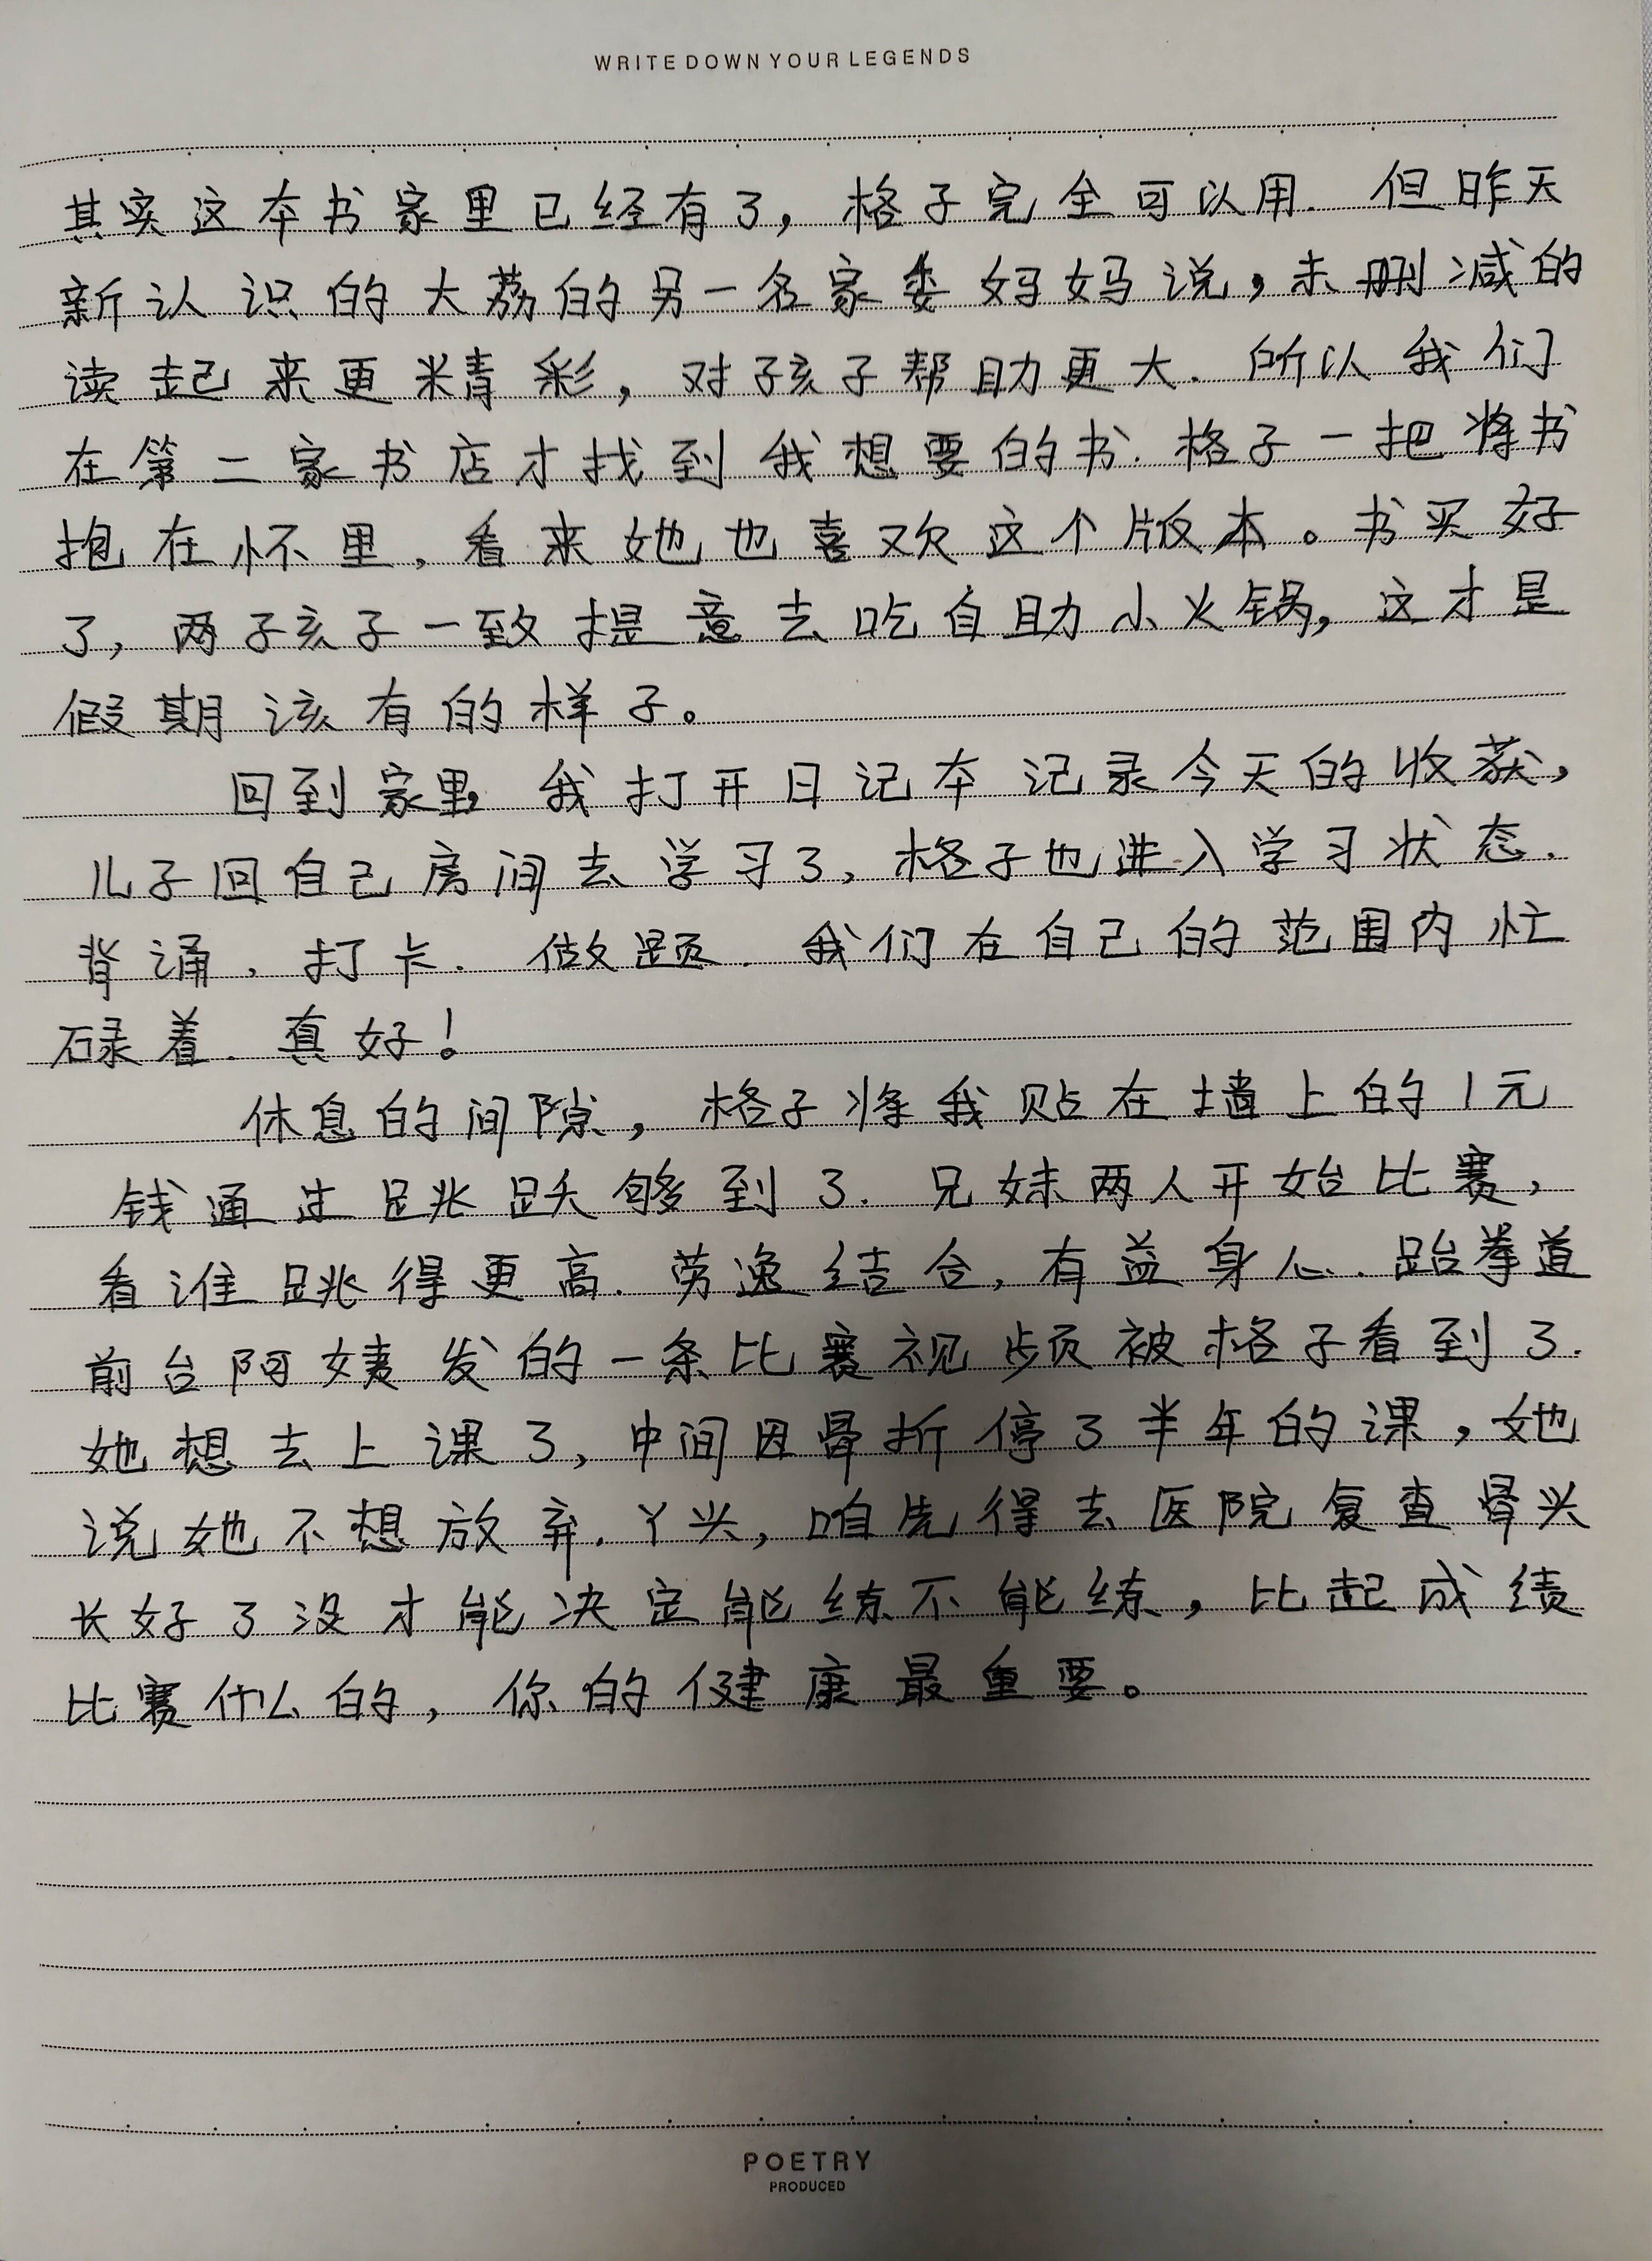 WRITE DOWN YOUR LEGENDS
其实这本书家里已经有了，格子完全可以用.但昨天
新认识的大荔的另一名家委妈妈说，未删减的
读起来更精彩，对孩子帮助更大.所以我们
在第二家书店才找到我想要的书.格子一把将书
抱在怀里，看来她也喜欢这个版本。书买好
了，两孩子一致提意去吃自助小火锅，这才是
假期该有的样子。
回到家里，我打开日记本记录今天的收获，
儿子回自己房间去学习了，格子也进入学习状态.
背诵、打卡.做题.我们在自己的范围内忙
碌着.真好！
休息的间隙，格子将我贴在墙上的1元
钱通过跳跃够到了.兄妹两人开始比赛，
看谁跳得更高.劳逸结合，有益身心.跆拳道
前台阿姨发的一条比赛视频被格子看到了.
她想去上课了，中间因骨折停了半年的课，她
说她不想放弃.丫头，咱先得去医院复查骨头
长好了没才能决定能练不能练，比起成绩
比赛什么的，你的健康最重要。
POETRY
PRODUCED